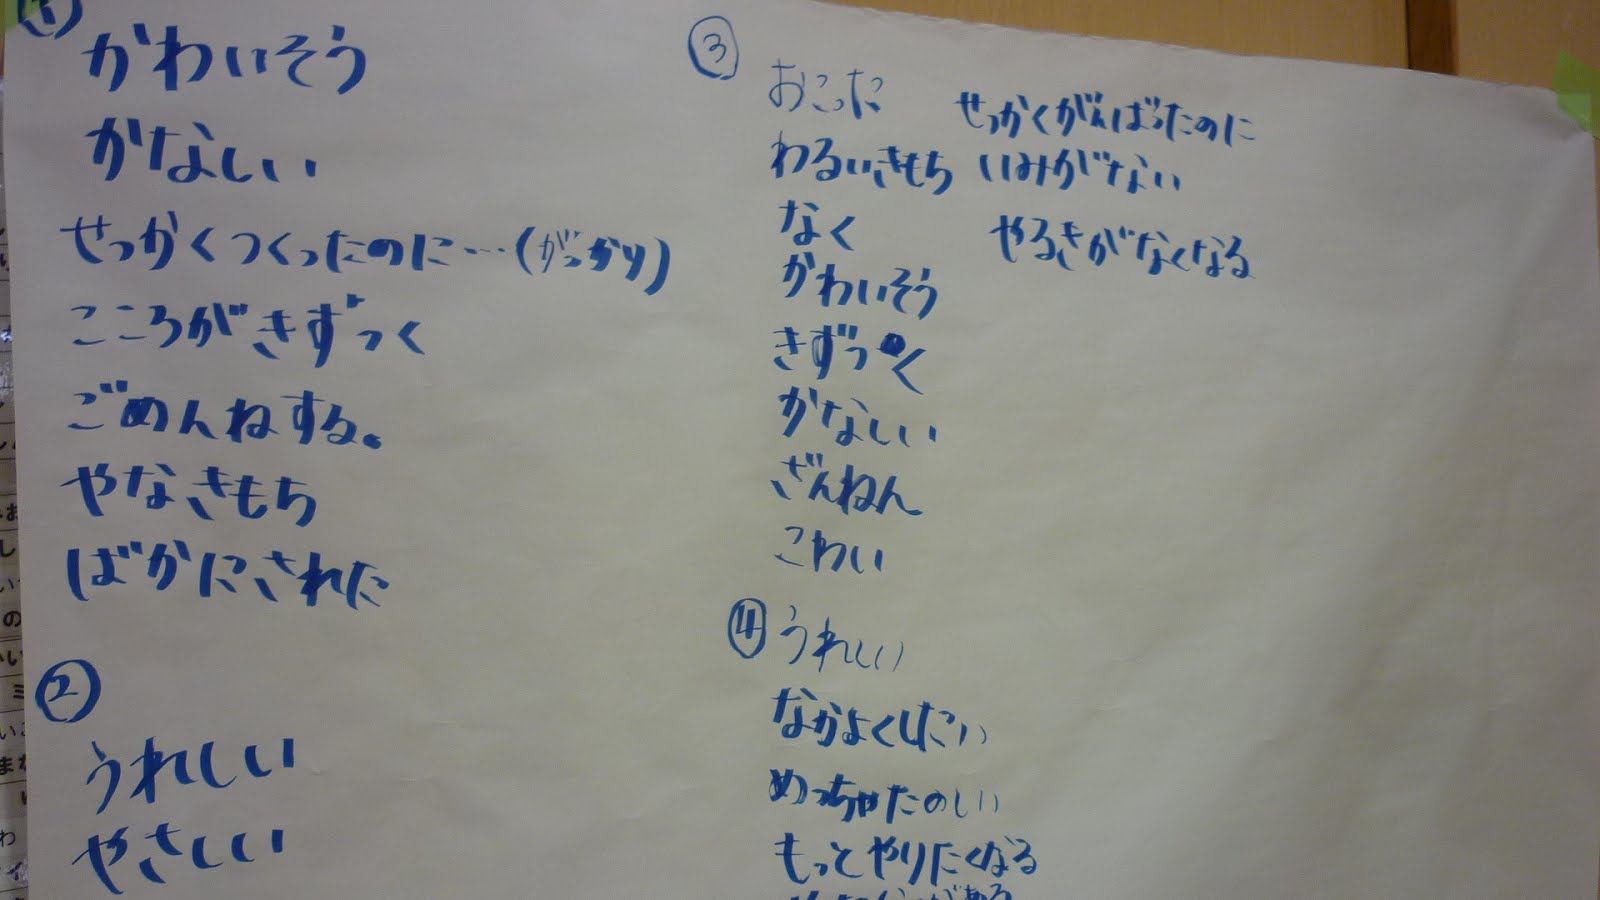 ①
かわいそう
かなしい
せっかくつくったのに…(がっかり)
こころがきずつく
ごめんねする。
やなきもち
ばかにされた
②
うれしい
やさしい
③
おこった
わるいきもち
なく
かわいそう
きずつく
かなしい
ざんねん
こわい
せっかくがんばったのに
いみがない
やるきがなくなる
④ うれしい
なかよくしたい
めっちゃたのしい
もっとやりたくなる